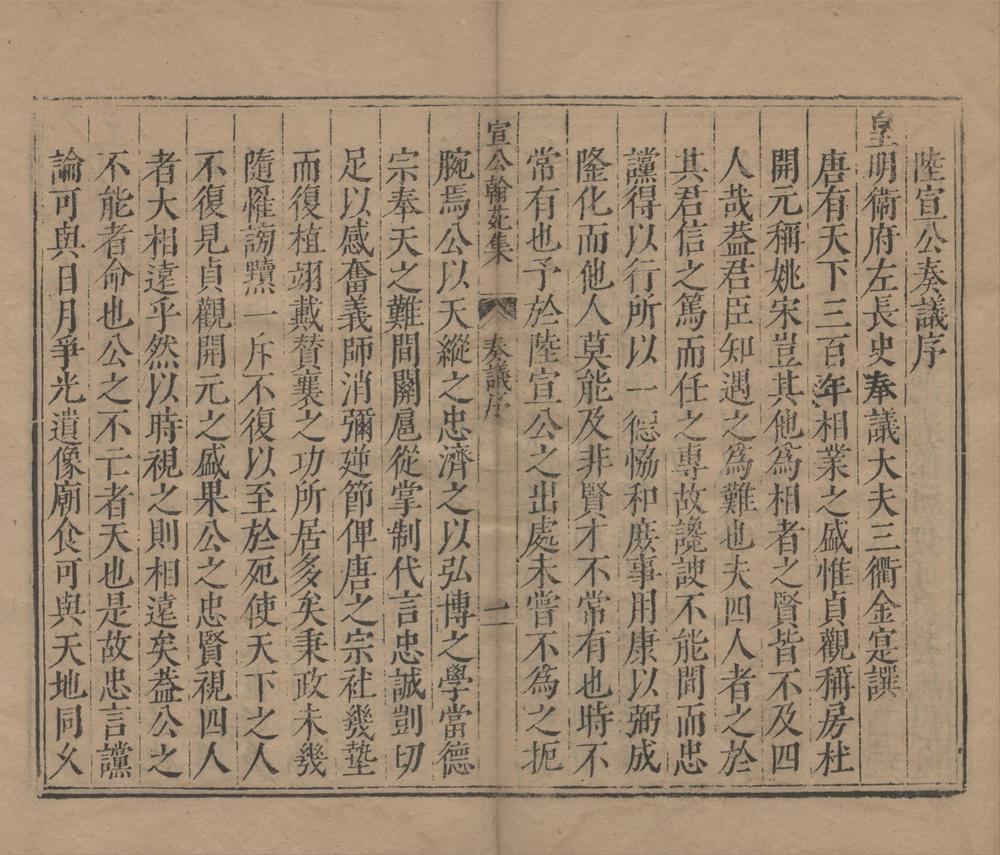 陸宣公奏議序
皇明衛府左長史奉議大夫三衢金寔譔
唐有天下三百年相業之盛惟貞觀稱房杜
開元稱姚宋豈其他爲相者之賢皆不及四
人哉葢君臣知遇之爲難也夫四人者之於
其君信之篤而任之專故讒諛不能間而忠
讜得以行所以一德恊和庶事用康以弼成
隆化而他人莫能及非賢才不常有也時不
常有也予於陸宣公之出處未嘗不爲之扼
宣公翰苑集 奏議序 二
腕焉公以天縱之忠濟之以弘博之學當德
宗奉天之難間關扈從掌制代言忠誠剴切
足以感奮義師消彌逆節俾唐之宗社幾墊
而復植翊戴賛襄之功所居多矣秉政未幾
隨罹謗黷一斥不復以至於死使天下之人
不復見貞觀開元之盛果公之忠賢視四人
者大相遠乎然以時視之則相遠矣葢公之
不能者命也公之不亡者天也是故忠言讜
論可與日月爭光遺像廟食可與天地同乆